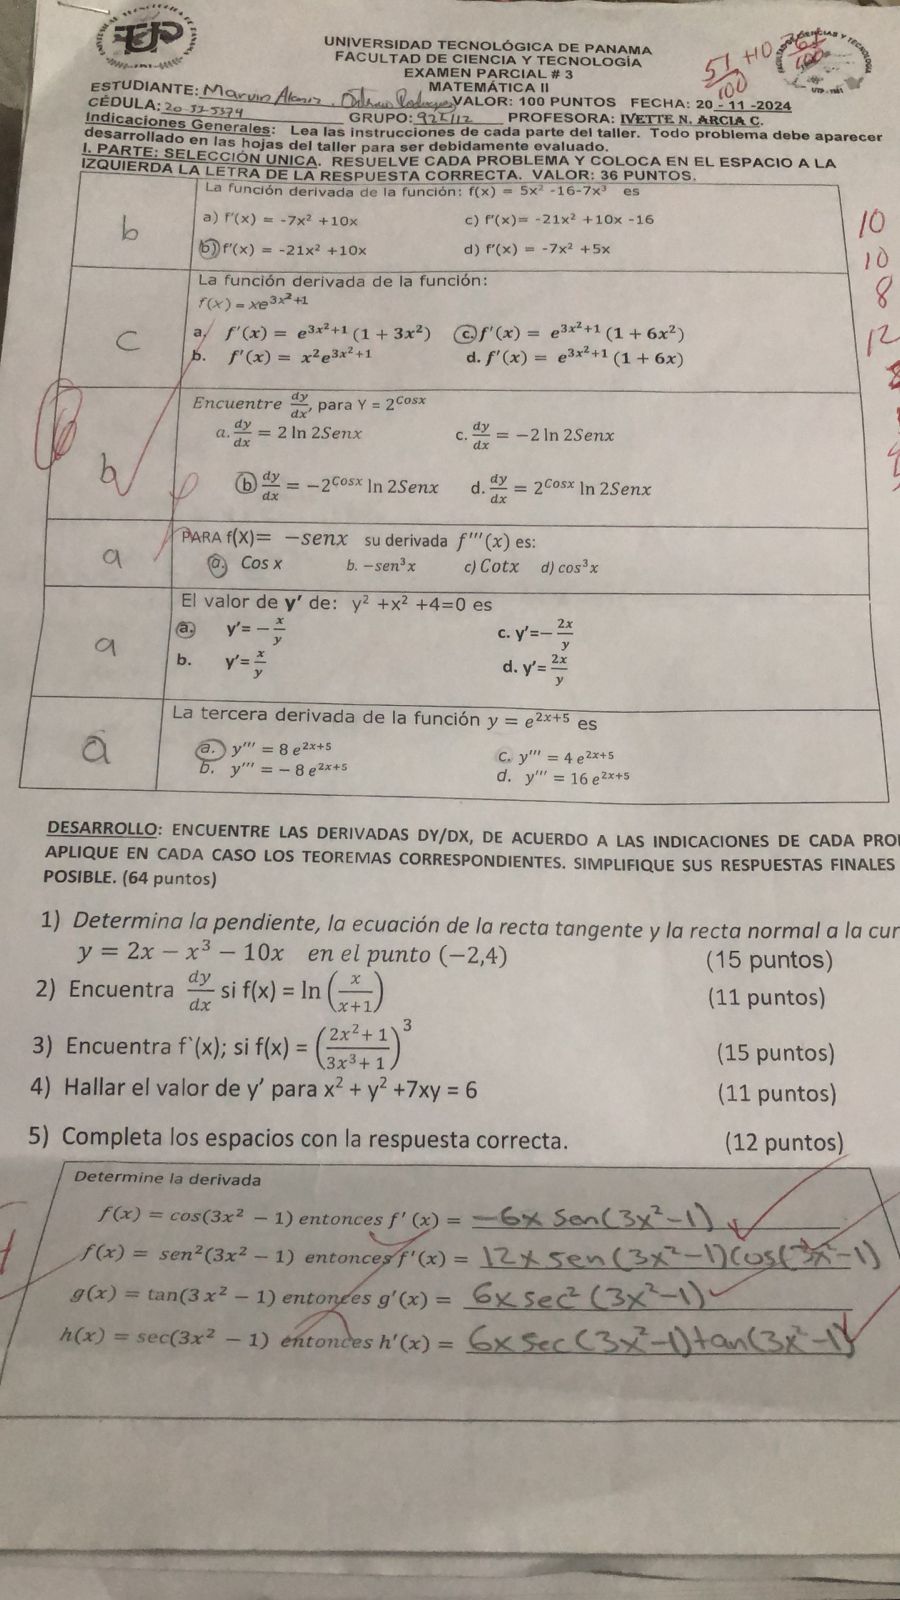 UNIVERSIDAD TECNOLÓGICA DE PANAMA
FACULTAD DE CIENCIA Y TECNOLOGÍA
EXAMEN PARCIAL # 3
MATEMÁTICA II
51/100 +10 61/100
ESTUDIANTE: Marvin VALOR: 100 PUNTOS FECHA: 20 - 11 -2024
CÉDULA: GRUPO: PROFESORA: IVETTE N. ARCIA C.
Indicaciones Generales: Lea las instrucciones de cada parte del taller. Todo problema debe aparecer
desarrollado en las hojas del taller para ser debidamente evaluado.
I. PARTE: SELECCIÓN UNICA. RESUELVE CADA PROBLEMA Y COLOCA EN EL ESPACIO A LA
IZQUIERDA LA LETRA DE LA RESPUESTA CORRECTA. VALOR: 36 PUNTOS.
La función derivada de la función: f(x) = 5x² -16-7x³ es
b
a) f'(x) = -7x² +10x c) f'(x)= -21x² +10x -16
b) f'(x) = -21x² +10x d) f'(x) = -7x² +5x
10
10
8
12
La función derivada de la función:
f(x) = xe^{3x²+1}
c
a. f'(x) = e^{3x²+1} (1 + 3x²) c. f'(x) = e^{3x²+1} (1 + 6x²)
b. f'(x) = x²e^{3x²+1} d. f'(x) = e^{3x²+1} (1 + 6x)
Encuentre dy/dx, para Y = 2^{Cosx}
b
a. dy/dx = 2 ln 2Senx c. dy/dx = -2 ln 2Senx
b dy/dx = -2^{Cosx} ln 2Senx d. dy/dx = 2^{Cosx} ln 2Senx
PARA f(X)= -senx su derivada f'''(x) es:
a
a. Cos x b. -sen³x c) Cotx d) cos³x
El valor de y' de: y² +x² +4=0 es
a
a. y'= -x/y c. y'=-2x/y
b. y'= x/y d. y'= 2x/y
La tercera derivada de la función y = e^{2x+5} es
a
a. y''' = 8 e^{2x+5} c. y''' = 4 e^{2x+5}
b. y''' = - 8 e^{2x+5} d. y''' = 16 e^{2x+5}
DESARROLLO: ENCUENTRE LAS DERIVADAS DY/DX, DE ACUERDO A LAS INDICACIONES DE CADA PRO
APLIQUE EN CADA CASO LOS TEOREMAS CORRESPONDIENTES. SIMPLIFIQUE SUS RESPUESTAS FINALES
POSIBLE. (64 puntos)
1) Determina la pendiente, la ecuación de la recta tangente y la recta normal a la cur
y = 2x - x³ - 10x en el punto (-2,4) (15 puntos)
2) Encuentra dy/dx si f(x) = ln (x/(x+1)) (11 puntos)
3) Encuentra f`(x); si f(x) = ((2x²+1)/(3x³+1))³ (15 puntos)
4) Hallar el valor de y' para x² + y² +7xy = 6 (11 puntos)
5) Completa los espacios con la respuesta correcta. (12 puntos)
Determine la derivada
f(x) = cos(3x² - 1) entonces f' (x) = -6x sen(3x²-1)
f(x) = sen²(3x² - 1) entonces f'(x) = 12x sen(3x²-1)cos(3x²-1)
g(x) = tan(3 x² - 1) entonces g'(x) = 6x sec²(3x²-1)
h(x) = sec(3x² - 1) entonces h'(x) = 6x sec(3x²-1)tan(3x²-1)